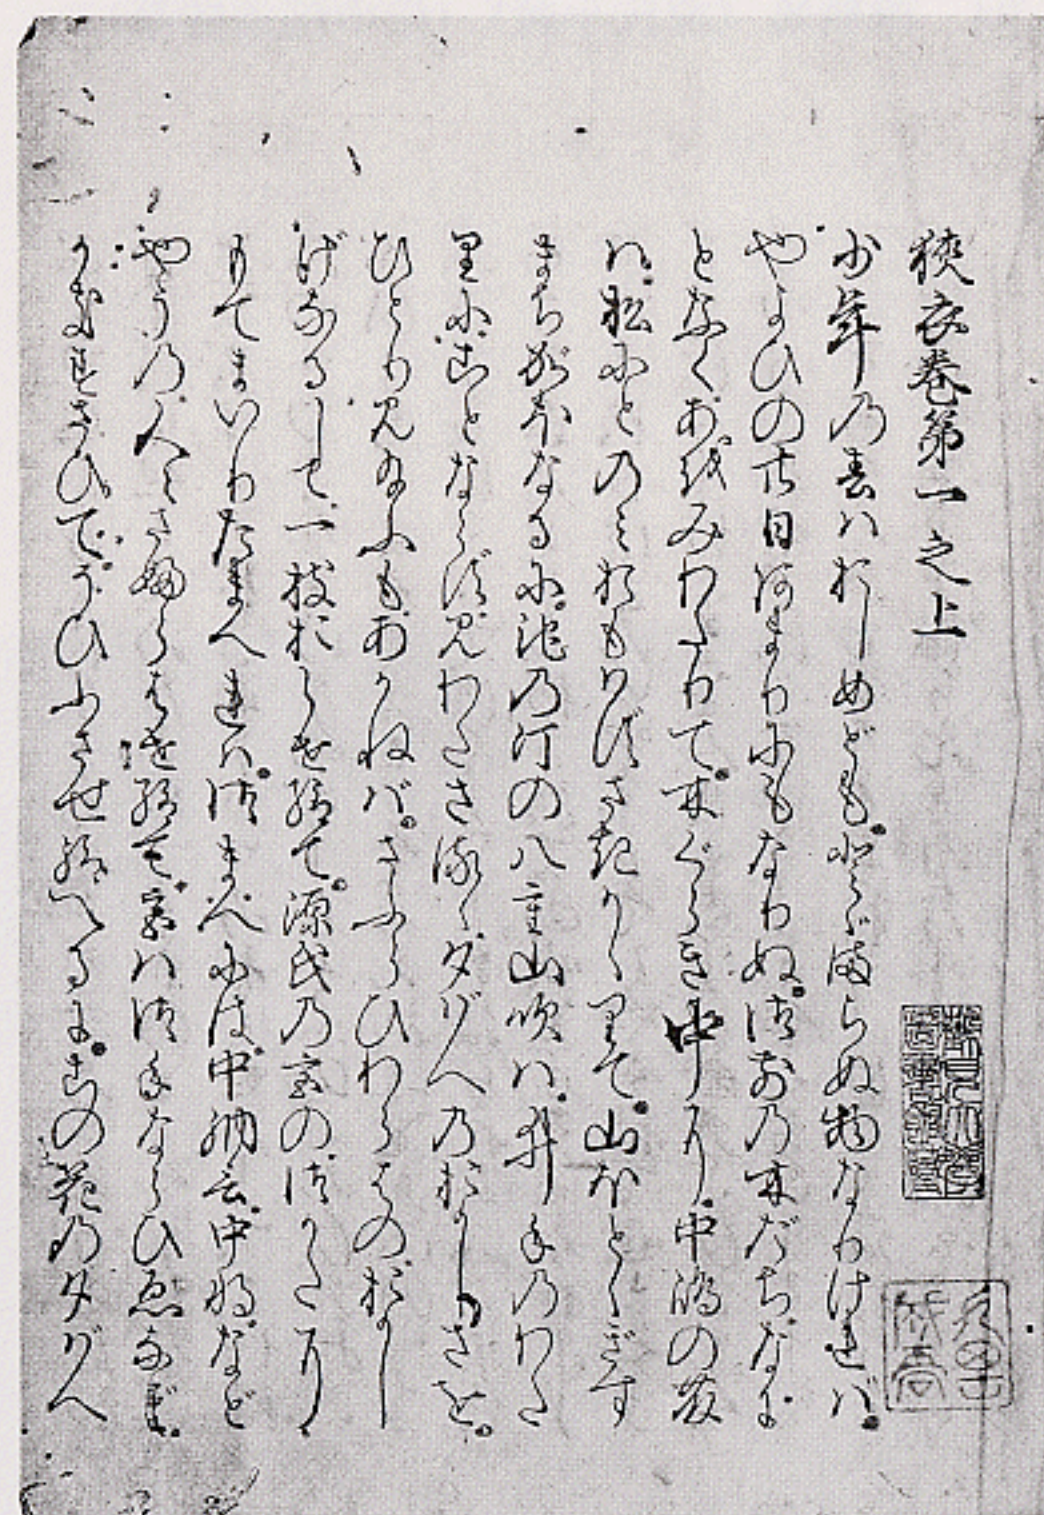 狭衣巻第一之上
少年の春はおしめどもとゞまらぬ物なりければ。
やよひの廿日あまりにもなりぬ。御前の木だちなに
となくあをみわたりて。木ぐらき中に。中嶋の藤
は。松にとのみおもはずさきかゝりて。山ほとゝぎす
まちがほなるに。池の汀の八重山吹は。井手のわた
りにことならず。見わたさるゝ夕ばへのおかしさを。
ひとり見給ふもあかねば。さふらひわらはのおかし
げなるして。一枝おらせ給て。源氏の宮の御かたに
もてまいりたまへれば。御まへには。中納言。中将など
やうの人々さふらはせ給て。宮は御手ならひゑなど
かきすさひて。そひふさせ給へるに。この花の夕ばへ